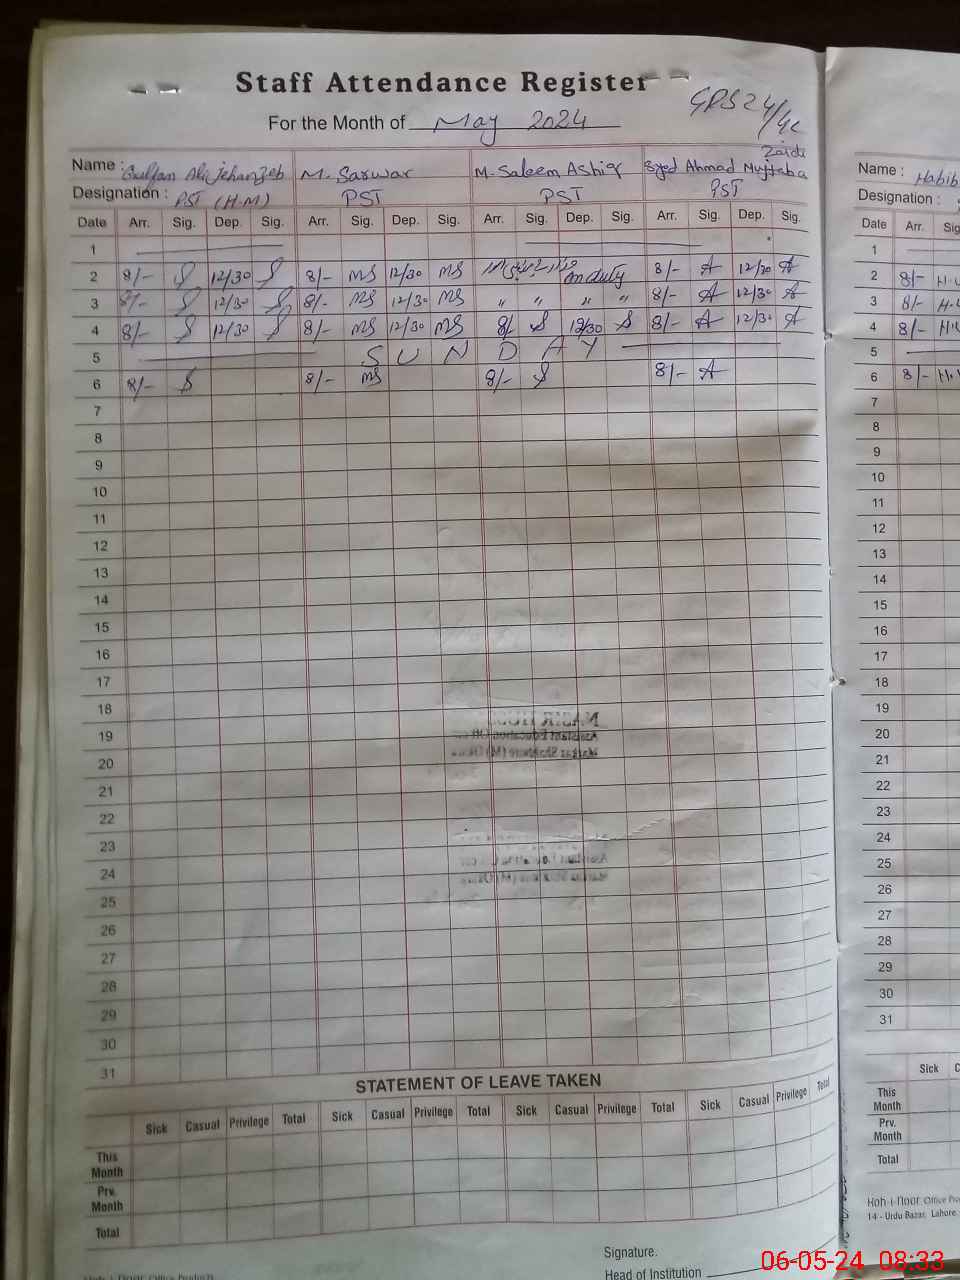 Staff Attendance Register
GPS 24/4L
For the Month of May 2024
Name : Gulfan Ali Jehanzeb M. Sarwar M. Saleem Ashiq Syed Ahmad Mujtaba Zaidi
Designation : PST (H.M) PST PST PST
Date Arr. Sig. Dep. Sig. Arr. Sig. Dep. Sig. Arr. Sig. Dep. Sig. Arr. Sig. Dep. Sig.
1
2 8/- 12/30 8/- MS 12/30 MS on duty 8/- A 12/30 A
3 8/- 12/30 8/- MS 12/30 MS " " " " 8/- A 12/30 A
4 8/- 12/30 8/- MS 12/30 MS 8/- 12/30 8/- A 12/30 A
5 SUNDAY
6 8/- 8/- MS 8/- 8/- A
7
8
9
10
11
12
13
14
15
16
17
18
19
20
21
22
23
24
25
26
27
28
29
30
31
STATEMENT OF LEAVE TAKEN
Sick Casual Privilege Total Sick Casual Privilege Total Sick Casual Privilege Total Sick Casual Privilege Total
This Month
Prv. Month
Total
Signature.
Head of Institution
Name : Habib
Designation :
Date Arr. Sig
1
2 8/-
3 8/-
4 8/-
5
6 8/-
7
8
9
10
11
12
13
14
15
16
17
18
19
20
21
22
23
24
25
26
27
28
29
30
31
Sick
This Month
Prv. Month
Total
Hoh-i-noor Office
14 - Urdu Bazar, Lahore
06-05-24 08:33